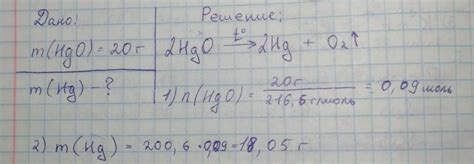 Дано:
Решение:
m(HgO) = 20 г
2HgO t° → 2Hg + O₂↑
m(Hg) - ?
1) n(HgO) = 20 г / 216,6 г/моль = 0,09 моль
2) m(Hg) = 200,6 · 0,09 = 18,05 г